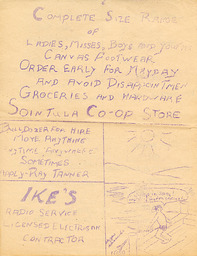 COMPLETE SIZE RANGE
OF
LADIES, MISSES, BOYS AND YOUTHS
CANVAS FOOTWEAR
ORDER EARLY FOR MAYDAY
AND AVOID DISAPPOINTMENT
GROCERIES AND HARDWARE
SOINTULA CO-OP STORE
BULLDOZER FOR HIRE
MOVE ANYTHING
ANYTIME, ANYWHERE
SOMETIMES
RAY TANNER
IKE'S
RADIO SERVICE
LICENSED ELECTRICIAN
CONTRACTOR